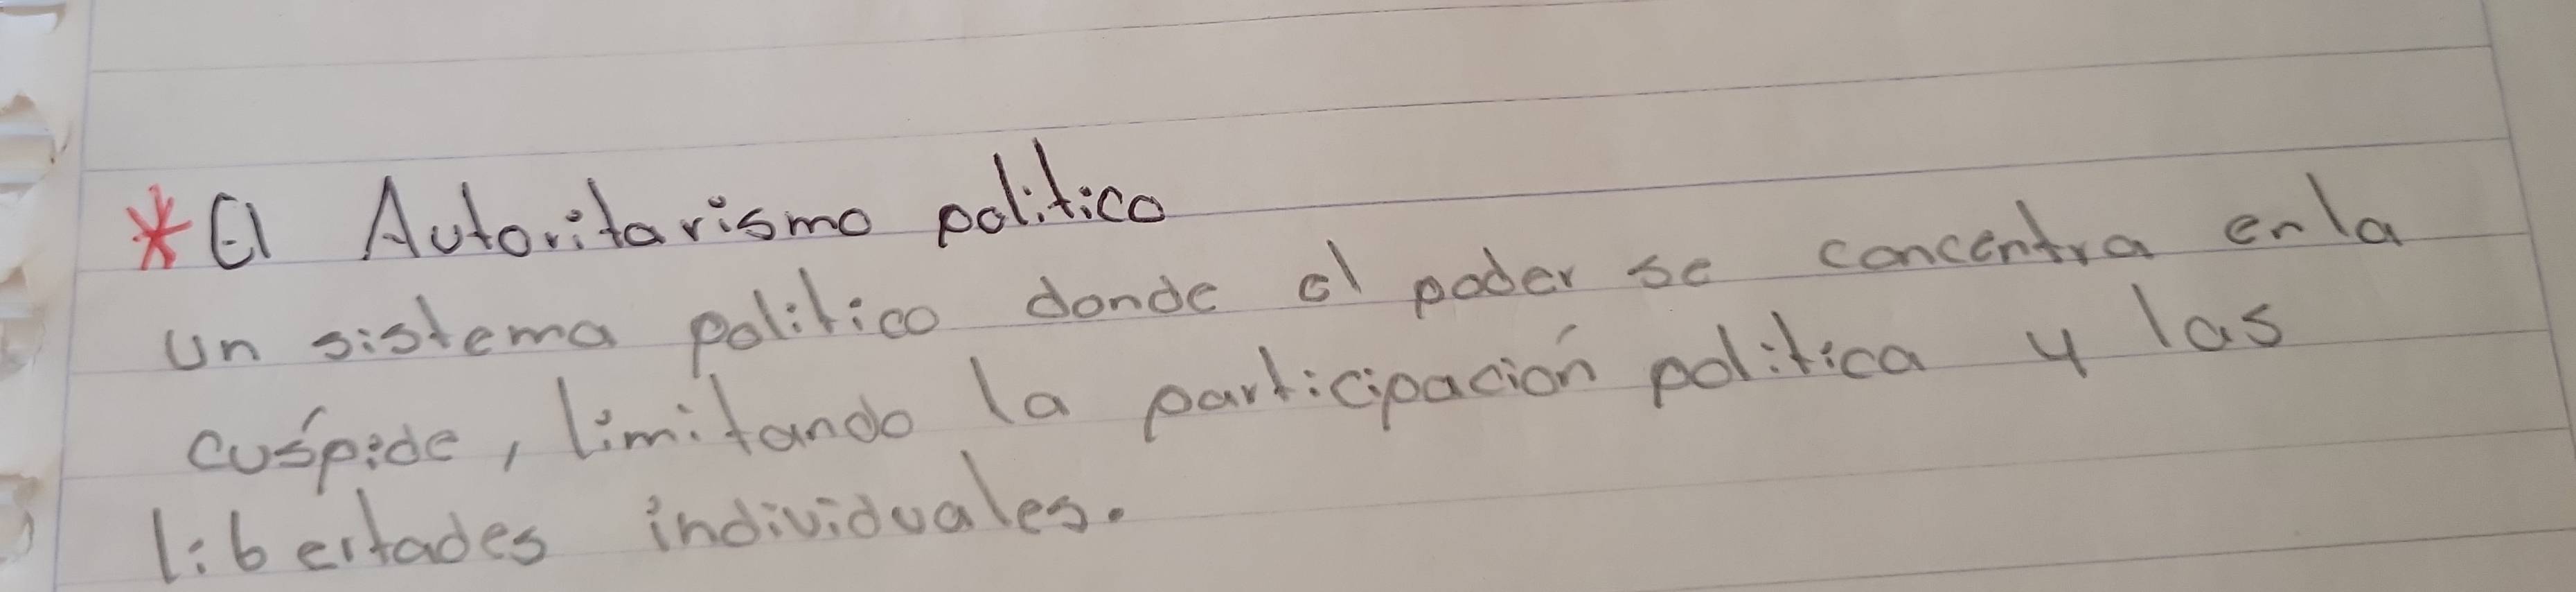 *El Autoritarismo politico
un sistema politico donde el poder se concentra en la
cuśpide, limitando la participación politica y las
libertades individuales.